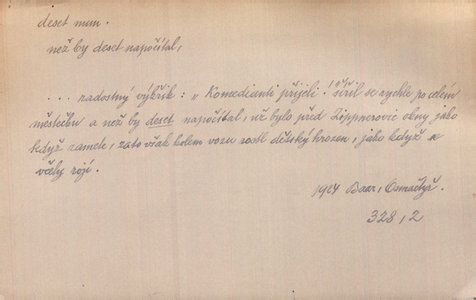 deset num.
než by deset napočítal,
... radostný výkřik: „Komedianti přijeli!" šířil se rychle po celém
městečku a než by deset napočítal, už bylo před Zippnerovic okny jako
když zamete, zato však kolem vozu rostl dětský hrozen, jako když se
včely rojí.
1924 Baar, Osmačtyř.
328, 2